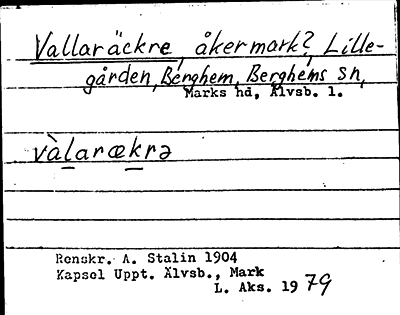 Vallaräckre, åkermark?, Lille-
gården, Berghem, Berghems sn,
Marks hd, Älvsb. l.
vàlarækrə
Renskr. A. Stalin 1904
Kapsel Uppt. Älvsb., Mark
L. Aks. 1979